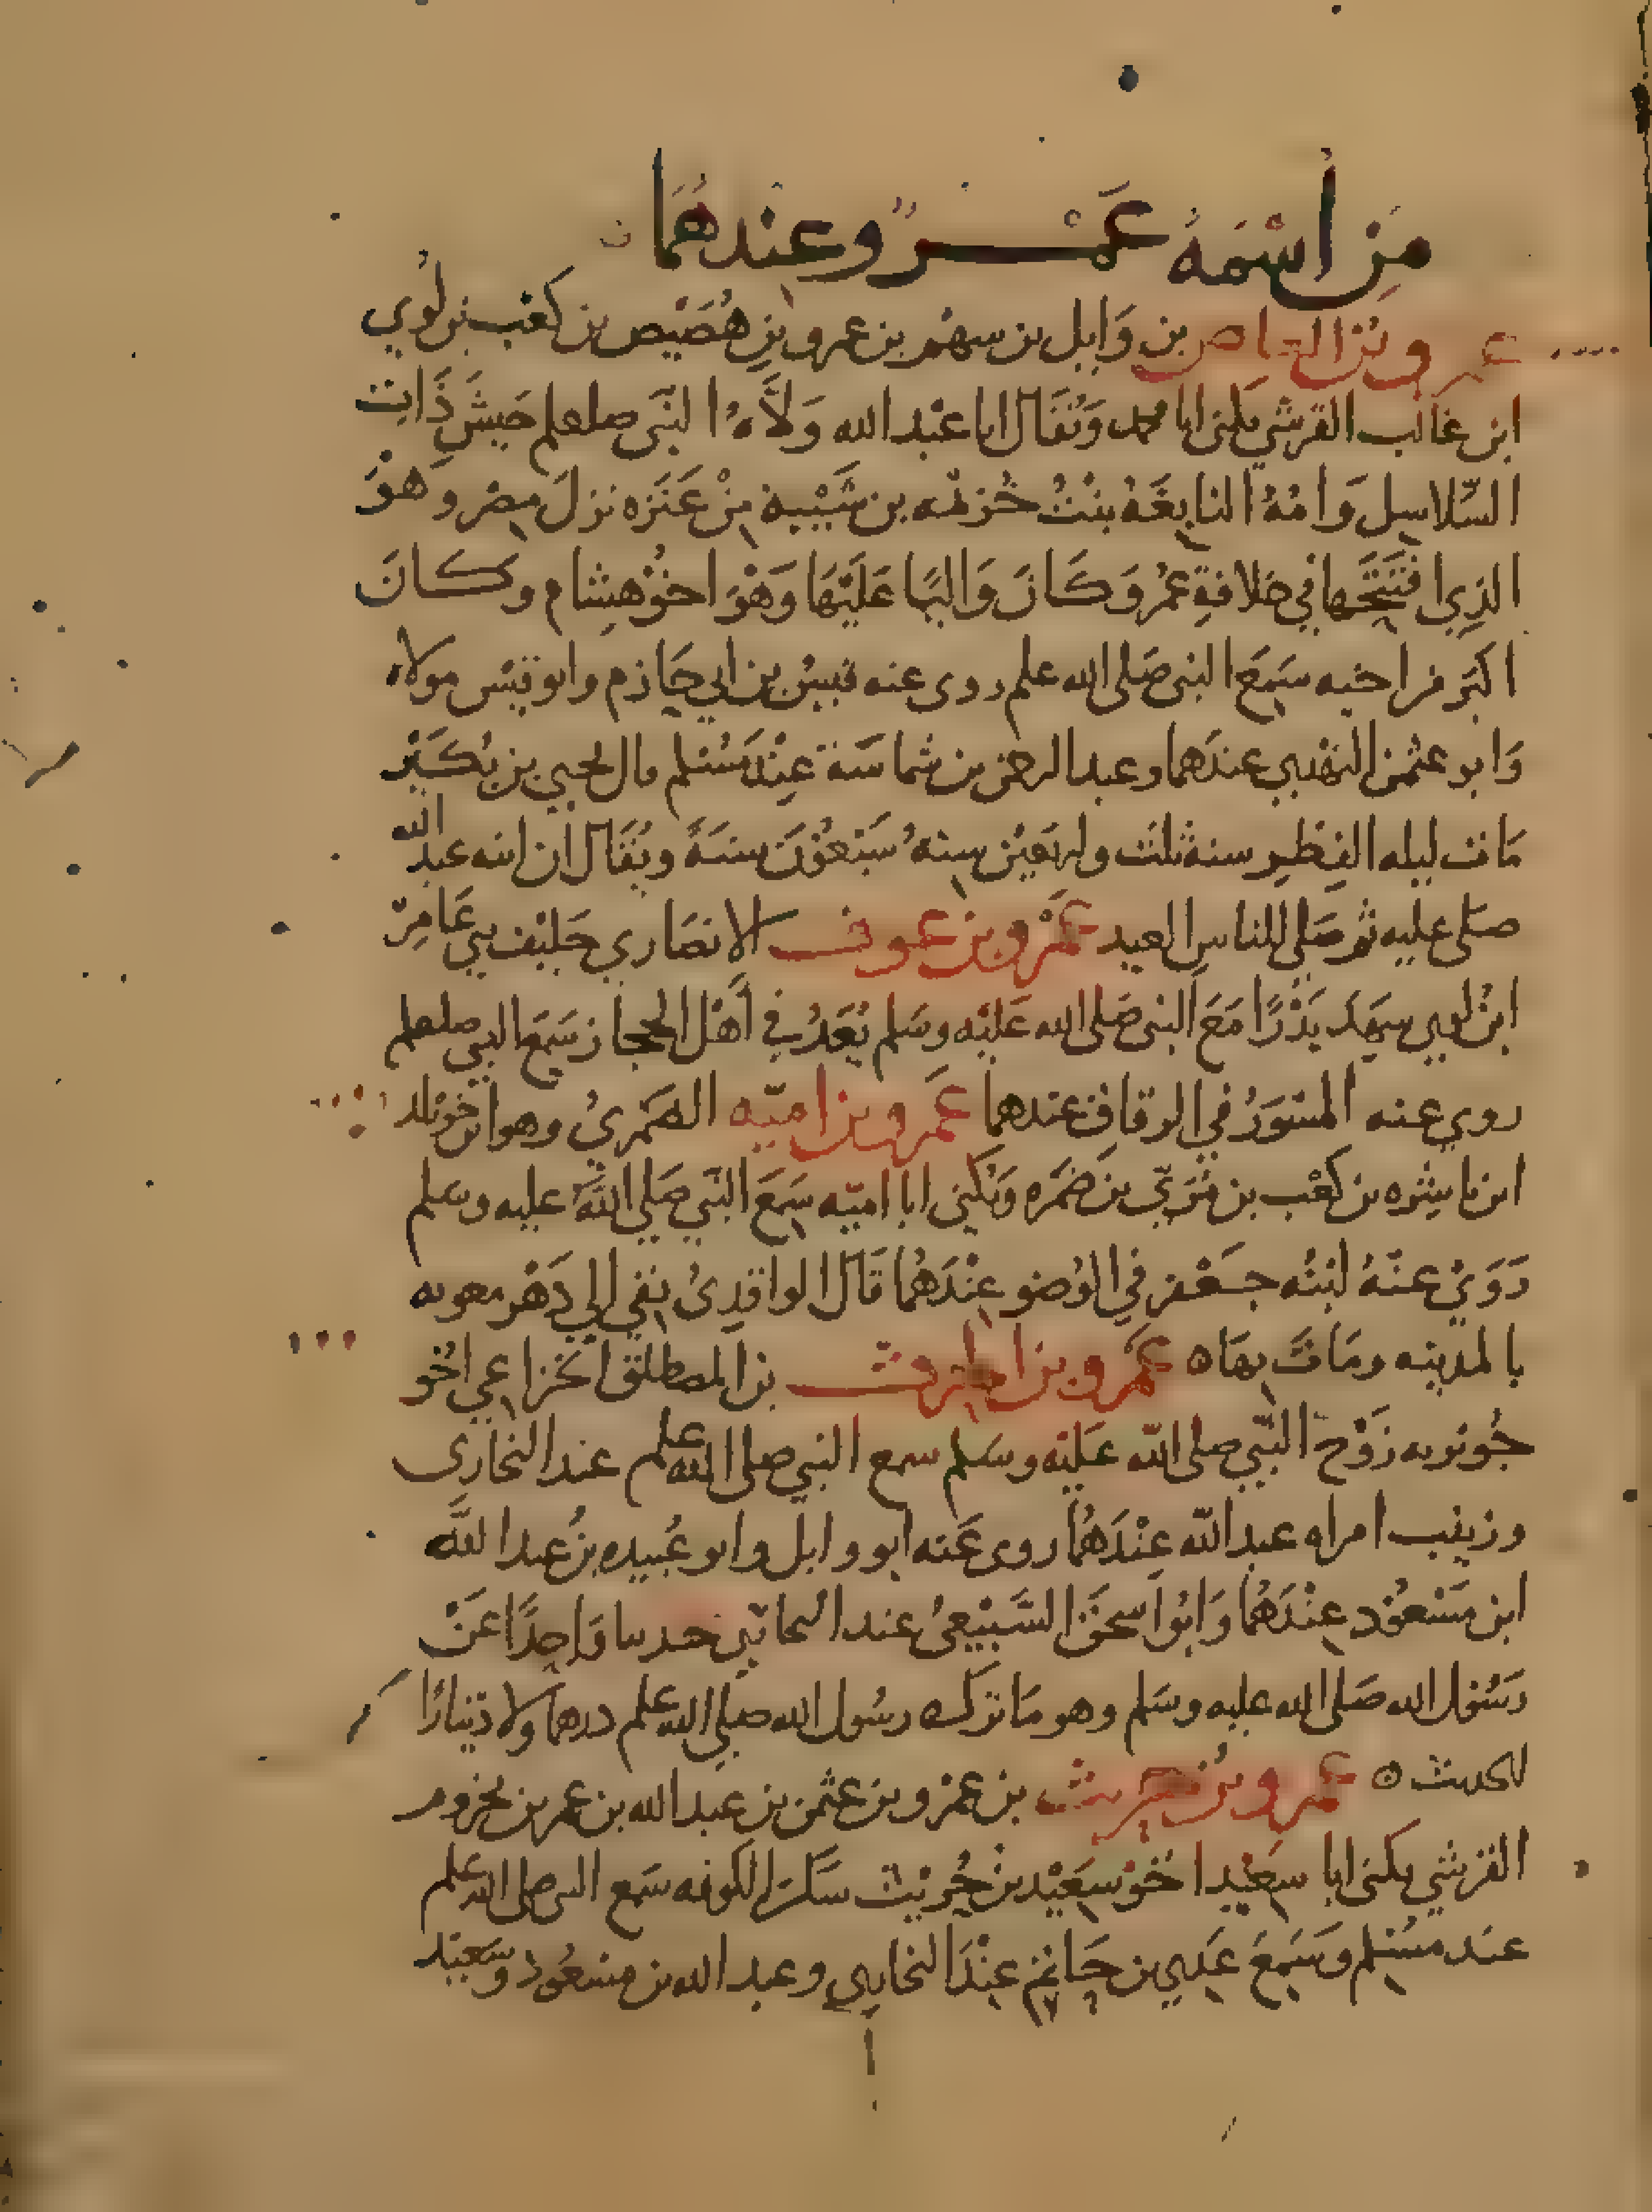 من اسْمُهُ عَمْرٌو عندهُمَا
عمرو بن العاص بن وَايل بن سهم بن عمرو بن هُصَيْص بن كعْب بن لُوي
ابن غالب القرشي يكنى ابا محمد وَيُقَال ابا عبْد الله وَلَّاهُ النبَى صلعلم جَيشَ ذَات
السّلاسِل وَامُهُ النابِغَهُ بنْتُ خُزيمه بن شَيْبة مِنْ عَنَزه نزلَ مِصْر وَهْوَ
الذِي افتَتَحَها في خلافةِ عمُر وَكَانَ وَاليًا عَلَيْهَا وَهْوَ اخوُ هِشام وكَانَ
اكبَر من اخيه سَمِعَ النبى صَلى الله علم روى عنه قيسُ بن ابي حَازم وابو قيْس مولاه
وَابو عثمن النهْدي عندَهما وعبد الرحمن بن شماسَة عِنْدَ مُسْلم مال يحيي بن بُكَيْر
مَات ليله الفِطِر سنة ثلث واربَعيْن سِنهُ سَبْعُوْنَ سنَةً ويُقَال ان ابنه عبد الله
صَلى عليه ثم صَلى للناسِ العيد عَمْرو بن عوف الانصَاري حَلِيْف بني عَامِر
ابن لوي سهِدَ بَدْرًا مَعَ النبى صَلى الله عَليْه وسَلم يُعَدُ فِي أهْل الحجاز سَمِعَ النبي صلعلم
روي عنه المسْوَرُ في الرقاق عندهما عَمرو بن اميّه الضَمْريُ وهو ابن خوْيلد
ابن ناشِره بن كعْب بن جُديّ بن ضَمْرَه وَيُكنى ابا اميّه سَمِعَ النّبي صَلي اللهُ عليه وسَلم
رَوَيْ عنْهُ ابْنُه جَعْفر فِي الوُضو عِنْدَهُمَا قَالَ الواقدِىُ بَقي الي دَهْر معويه
بالمدينه ومَاتَ بهَا ه عَمْرو بن الحارث بن المصطلق الخزاعي اخُو
جُويرىه زَوْج النّبي صلى الله عَليْه وسَلم سمع النبي صلى الله علم عند البخارى
وزينب امراه عبد الله عِنْدَهُمَا روى عَنه ابو وايل وابو عُبيده بنُ عبد اللَّه
ابن مَسْعوُد عِنْدَهُمَا وَابُوا سحقَ السَّبِيْعىُ عند البخارِي حدىىا وَاحِدًا عَنْ
رَسُول الله صَلى الله عليه وسَلم وهو مَا ترَك رسُول الله صلي الله علم درهما ولا دِينارًا
الحديث ه عمرو بنُ حريث بن عمْرو بن عثمن بن عبد الله بن عمر بن مخزوم
القرشي يكنى ابا سعَيْد اخوْ سَعَيْد بن حُريْث سَكَن الكوفه سَمع النبى صلى الله علم
عند مسُلم وسَمِعَ عَدي بن حَاتِم عِنْدَ البخاري وعبد الله بن مسْعُود وسَعيْد